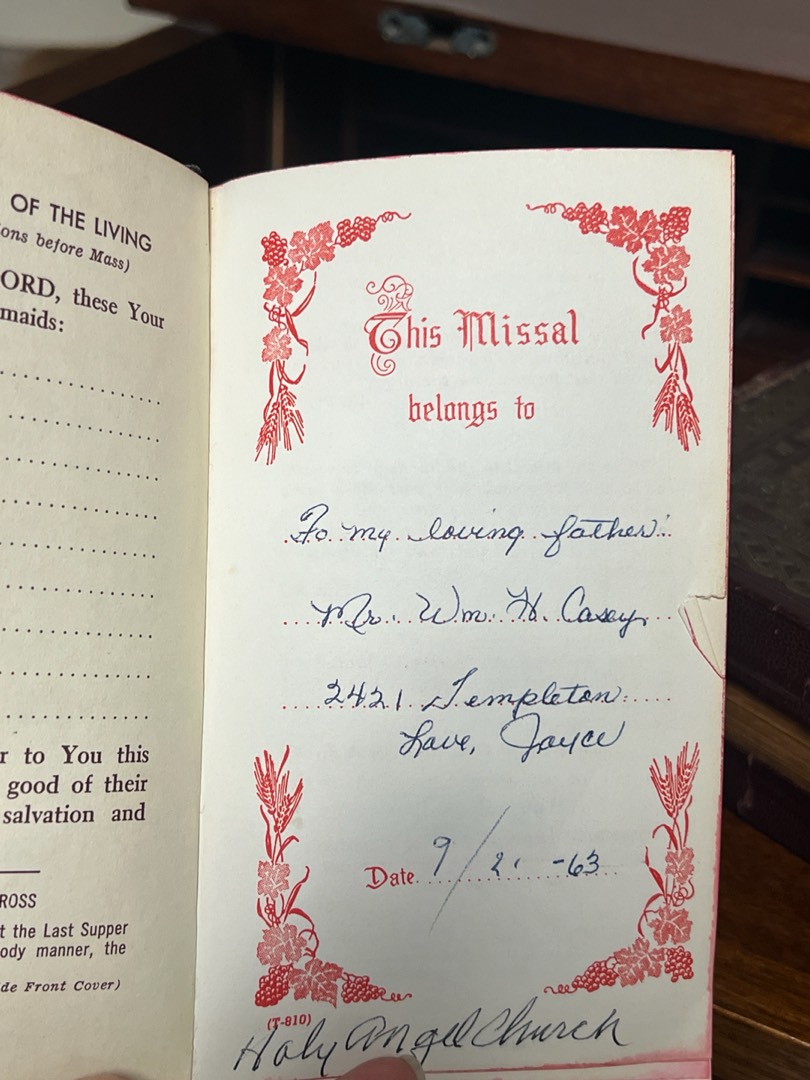 OF THE LIVING
ons before Mass)
ORD, these Your
maids:
r to You this
good of their
salvation and
ROSS
t the Last Supper
ody manner, the
de Front Cover)
This Missal
belongs to
To my loving father:
Mr. Wm. H. Casey,
2421 Templeton
Love, Joyce
Date 9/2. -63
(T-810)
Holy Angel Church